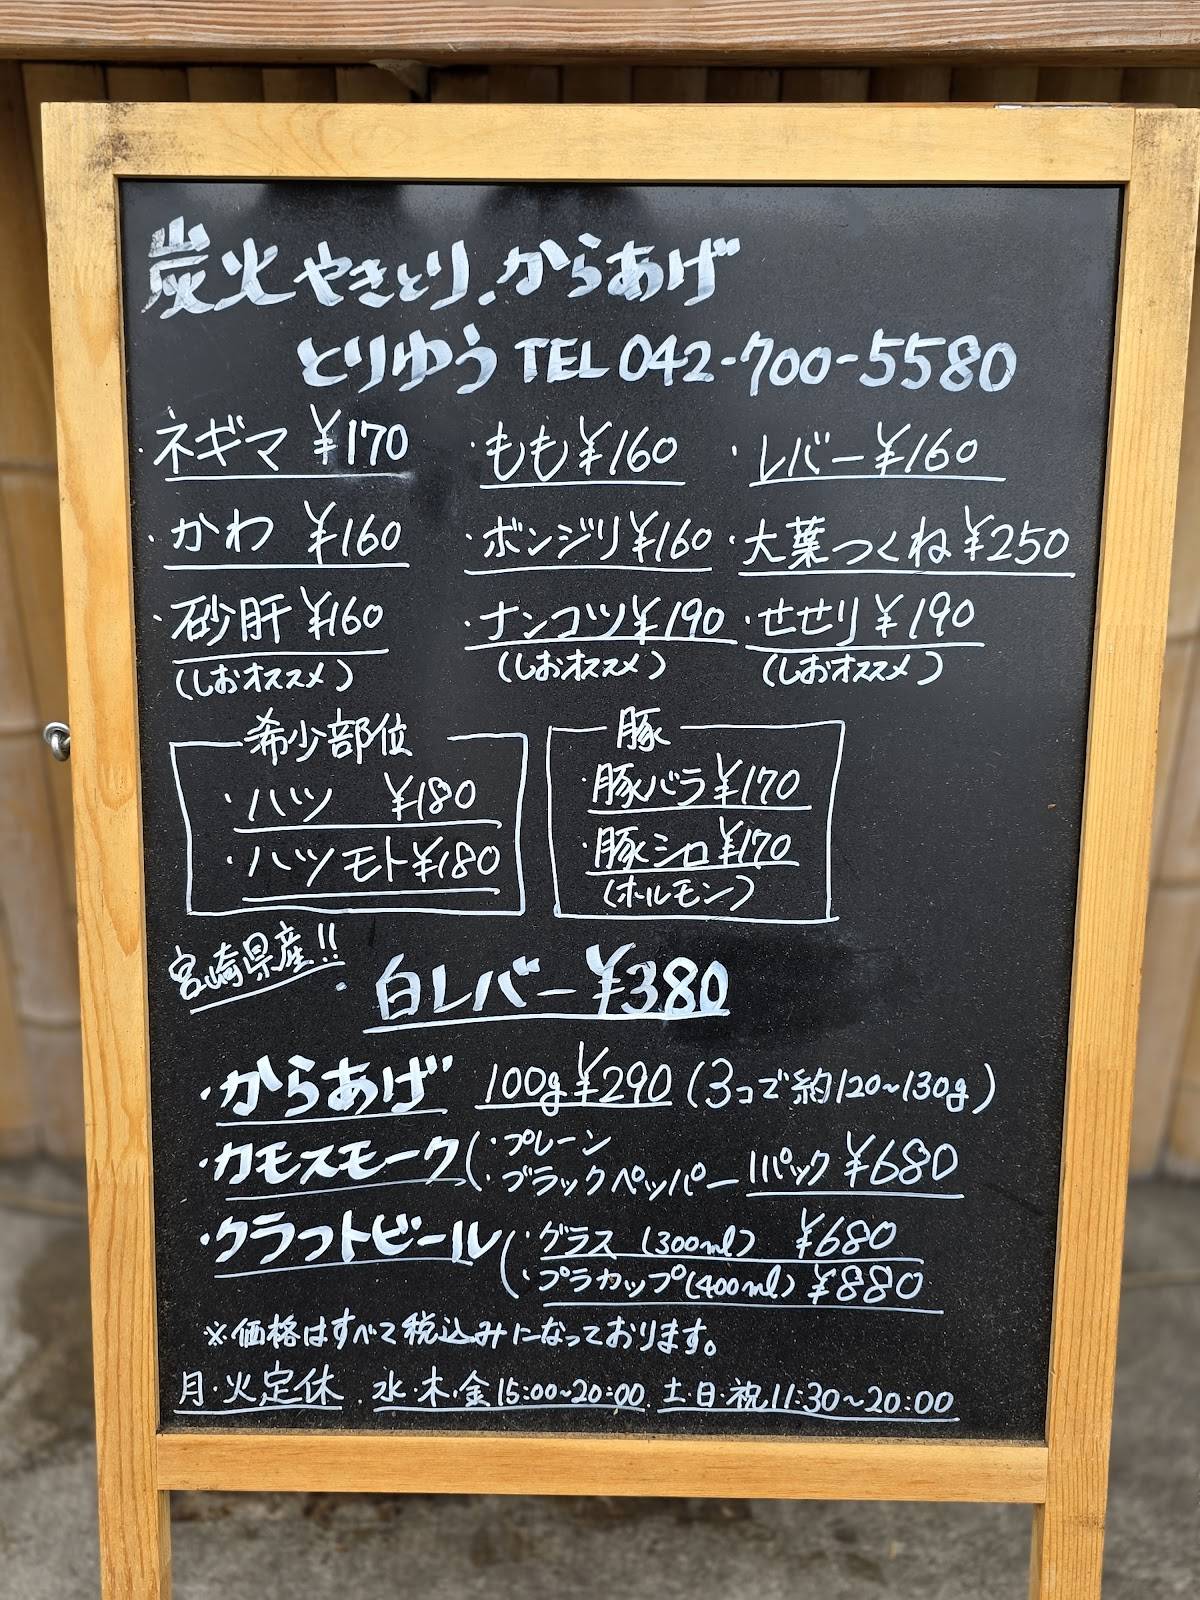 炭火やきとり.からあげ
とりゆう TEL 042-700-5580
・ネギマ ¥170 ・もも¥160 ・レバー¥160
・かわ ¥160 ・ボンジリ¥160 ・大葉つくね¥250
・砂肝¥160 ・ナンコツ¥190 ・せせり¥190
(しおオススメ) (しおオススメ) (しおオススメ)
希少部位
・ハツ ¥180
・ハツモト¥180
豚
・豚バラ¥170
・豚シロ¥170
(ホルモン)
宮崎県産!!
・白レバー¥380
・からあげ 100g¥290 (3コで約120~130g)
・カモスモーク(・プレーン
・ブラックペッパー 1パック¥680
・クラフトビール(・グラス (300ml) ¥680
・プラカップ(400ml) ¥880
※価格はすべて税込みになっております。
月・火定休. 水・木・金15:00~20:00. 土・日・祝11:30~20:00